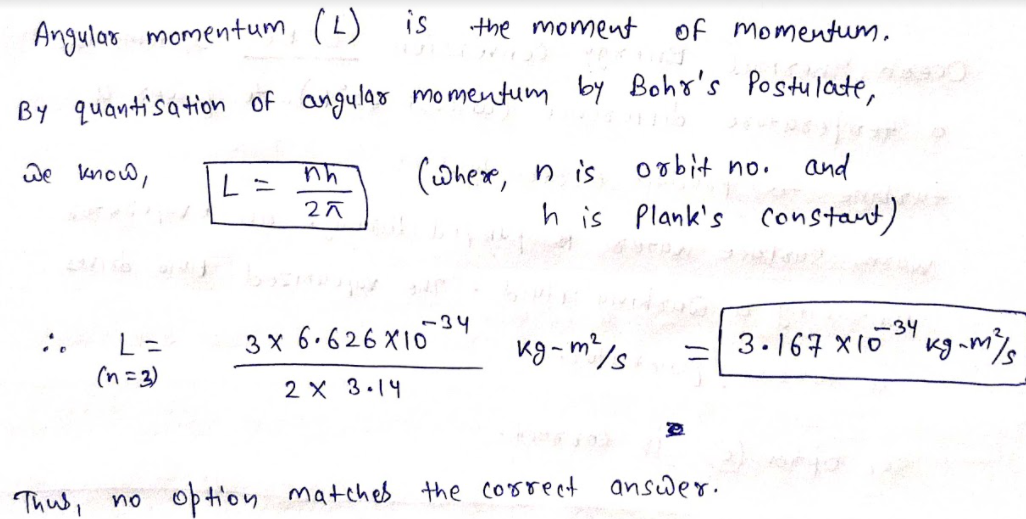 Angular momentum (L) is the moment of momentum.
By quantisation of angular momentum by Bohr's Postulate,
we know, L = nh / 2π (where, n is orbit no. and
h is Plank's constant)
∴ L = 3 × 6.626 × 10⁻³⁴ / 2 × 3.14 kg-m²/s = 3.167 × 10⁻³⁴ kg-m²/s
(n=3)
Thus, no option matches the correct answer.